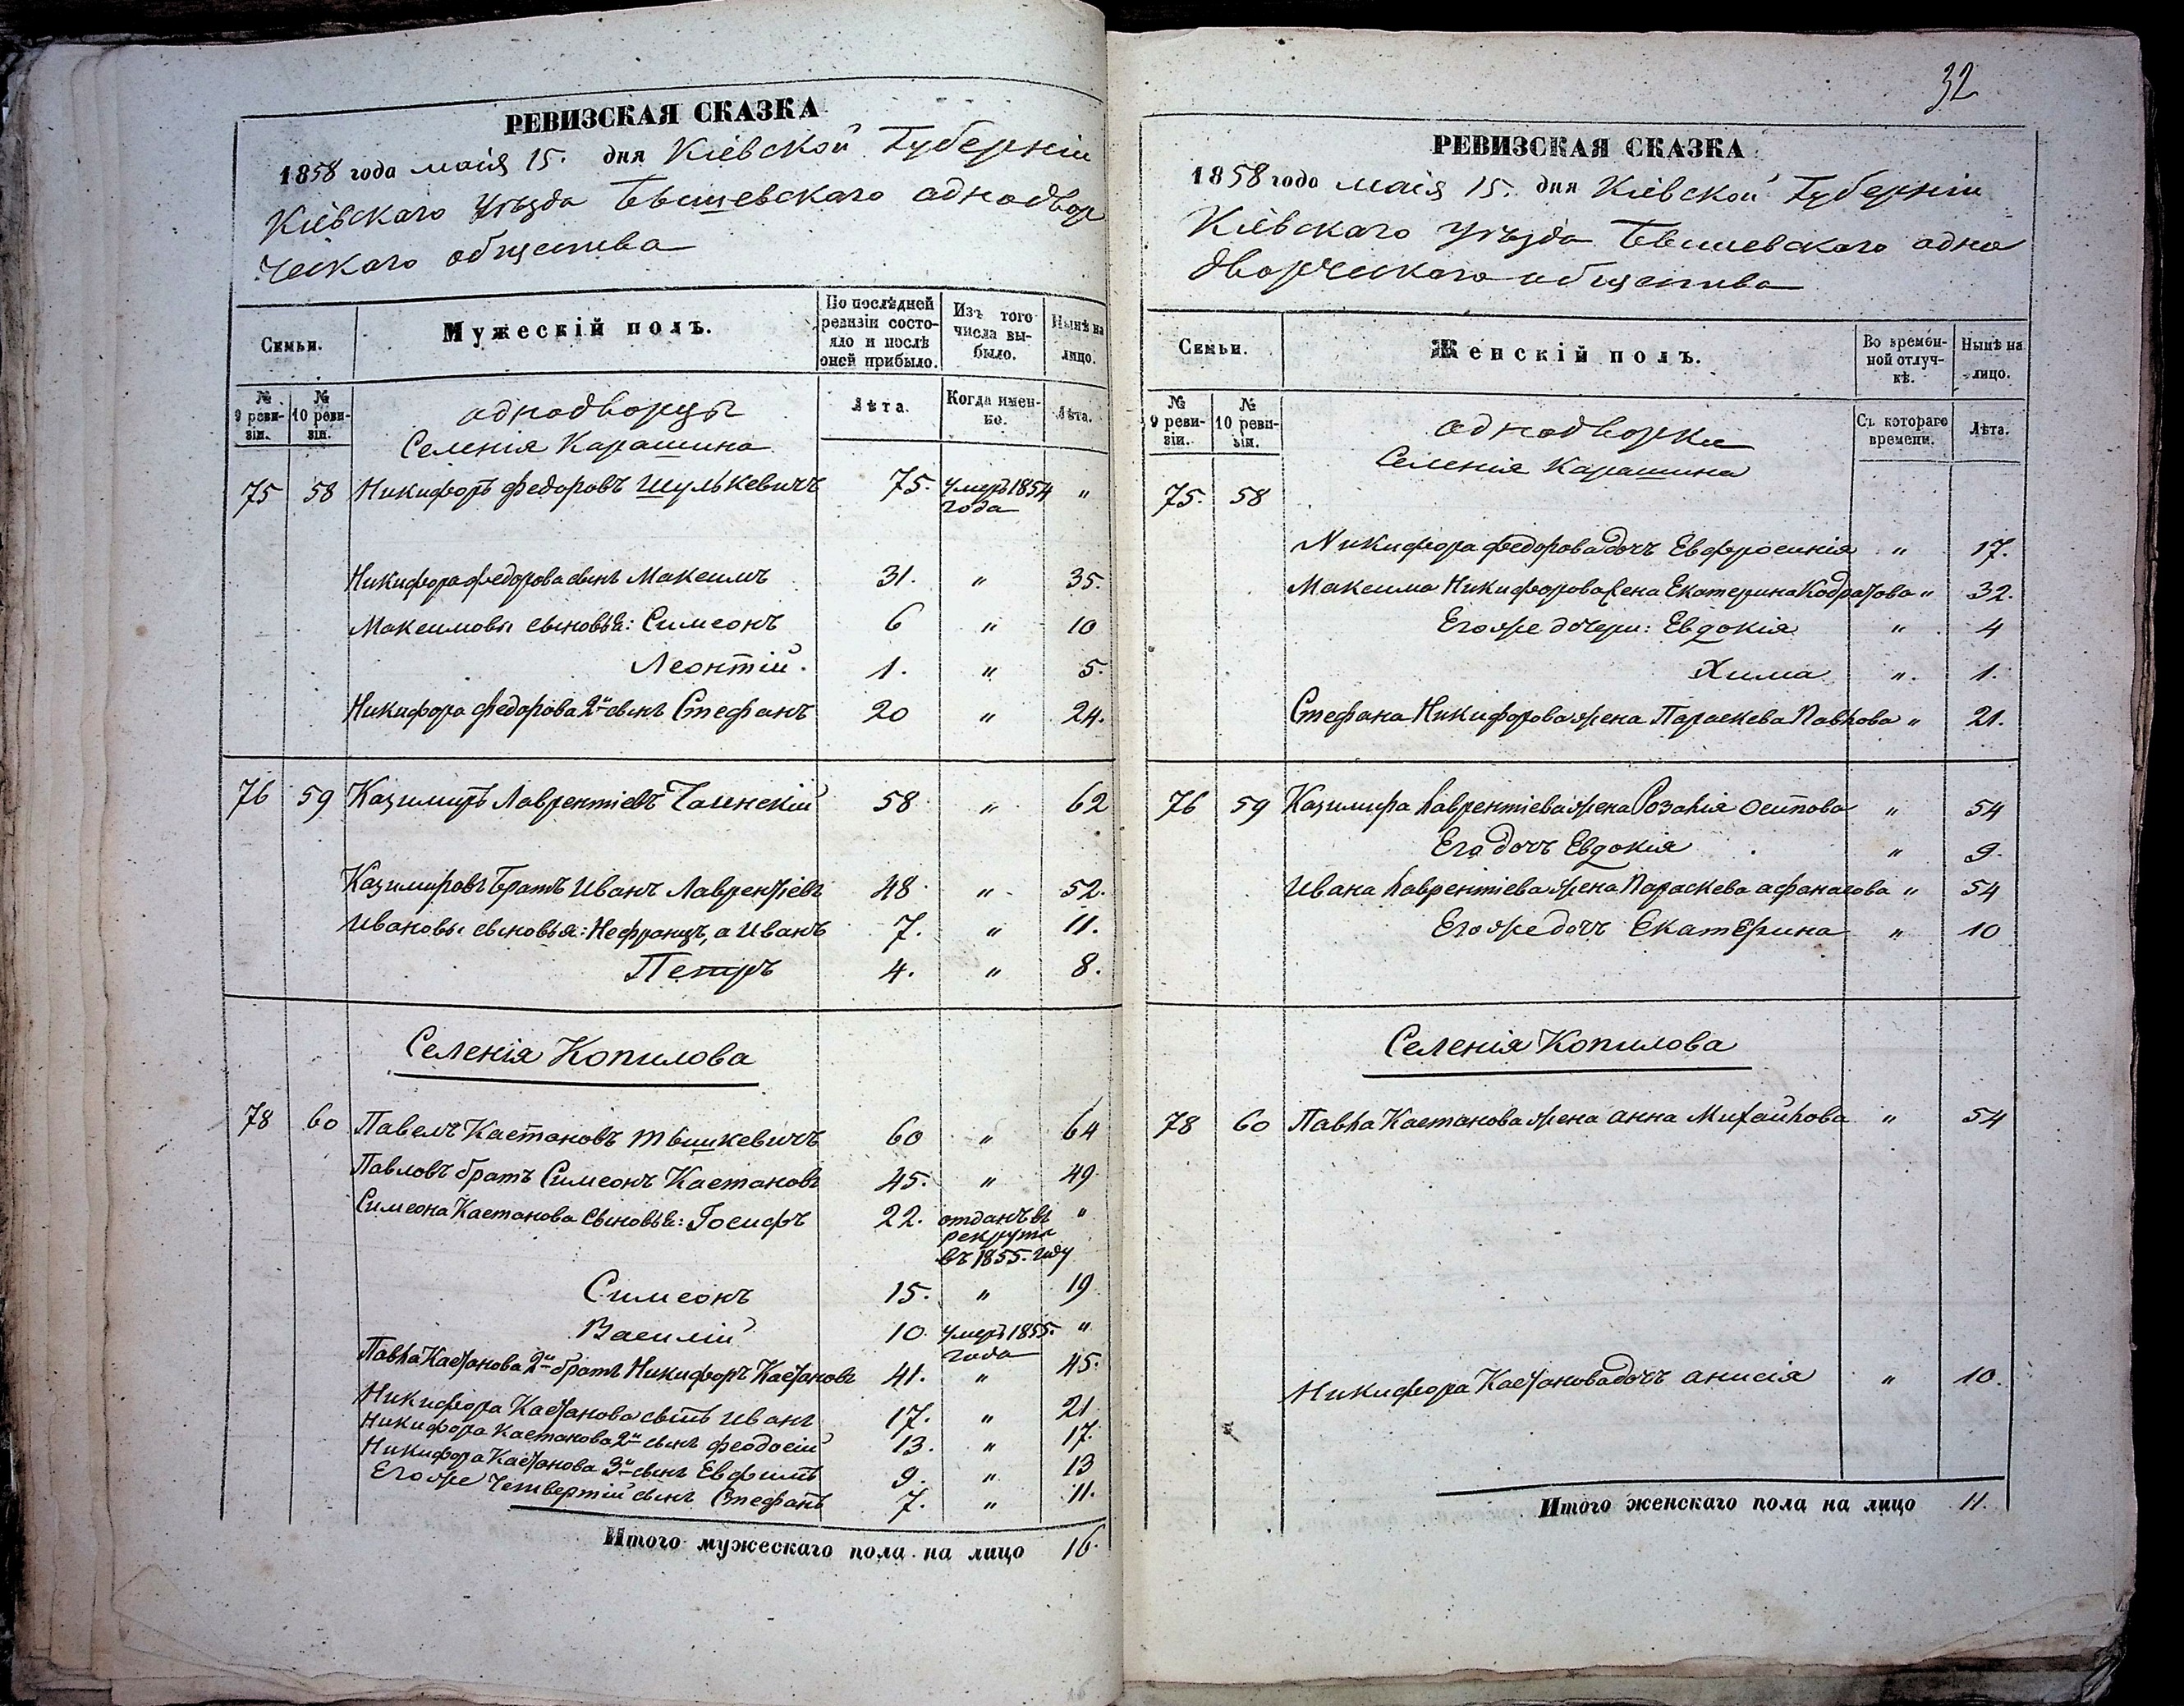 РЕВИЗСКАЯ СКАЗКА
1858 года маія 15. дня Кіевской Губерніи
Кіевскаго Уѣзда Бышевскаго однодвор
ческаго общества
Семьи.
Мужескій полъ.
По послѣдней ревизіи состояло и послѣ оней прибыло.
Изъ того числа выбыло.
Нынѣ на лицо.
№ 9 ревизіи.
№ 10 ревизіи.
Лѣта.
Когда именно.
Лѣта.
однодворцы
Селенія Карашина
75 58 Никифоръ Федоровъ Шулькевичъ 75. умеръ 1854 года "
Никифора Федорова сынъ Максимъ 31. " 35.
Максимовы сыновья: Симеонъ 6 " 10
Леонтій. 1. " 5.
Никифора Федорова 2й сынъ Стефанъ 20 " 24.
76 59 Казимиръ Лаврентіевъ 58 " 62
Казимировъ братъ Иванъ Лаврентіевъ 48 " 52.
Ивановы сыновья: Не францъ, а Иванъ 7. " 11.
Петръ 4. " 8.
Селенія Копилова
78 60 Павелъ Каетановъ Тышкевичъ 60 " 64
Павловъ братъ Симеонъ Каетановъ 45. " 49.
Симеона Каетанова сыновья: Іосифъ 22. отданъ въ рекрута въ 1855. году "
Симеонъ 15. " 19
Василій 10. умеръ 1855. года "
Павла Каетанова 2й братъ Никифоръ Каетановъ 41. " 45.
Никифора Каетанова сынъ Иванъ 17. " 21
Никифора Каетанова 2й сынъ Феодосій 13. " 17.
Никифора Каетанова 3й сынъ Евфимъ 9. " 13
Его же Четвертій сынъ Стефанъ 7. " 11.
Итого мужескаго пола на лицо 16.
32
РЕВИЗСКАЯ СКАЗКА
1858 года маія 15. дня Кіевской Губерніи
Кіевскаго Уѣзда Бышевскаго одно
дворческаго общества
Семьи.
Женскій полъ.
Во временной отлучкѣ.
Нынѣ на лицо.
№ 9 ревизіи.
№ 10 ревизіи.
Съ котораго времени.
Лѣта.
однодворки
Селенія Карашина
75. 58
Никифора Федорова дочь Евфросинія " 17.
Максима Никифорова жена Екатерина Кодратова " 32.
Его же дочери: Евдокія " 4
Хима ". 1.
Стефана Никифорова жена Параскева Павлова " 21.
76 59 Казимира Лаврентіева жена Розалія Осипова " 54
Его дочь Евдокія " 9.
Ивана Лаврентіева жена Параскева Афанасова " 54
Его же дочь Екатерина " 10
Селенія Копилова
78 60 Павла Каетанова жена Анна Михайлова " 54
Никифора Каетанова дочь Анисія " 10.
Итого женскаго пола на лицо 11.